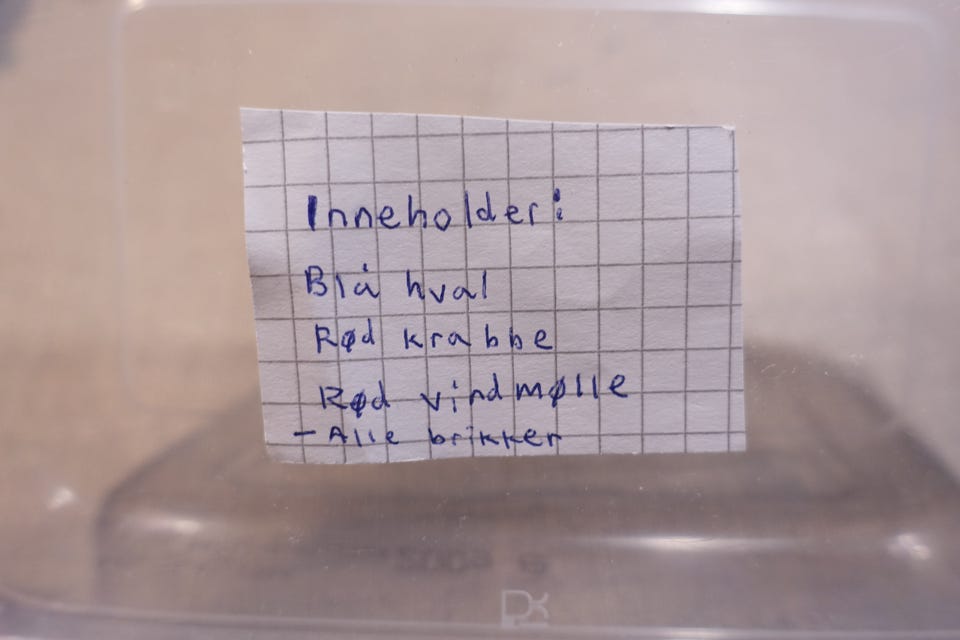 Inneholder:
Blå hval
Rød krabbe
Rød vindmølle
- Alle brikker